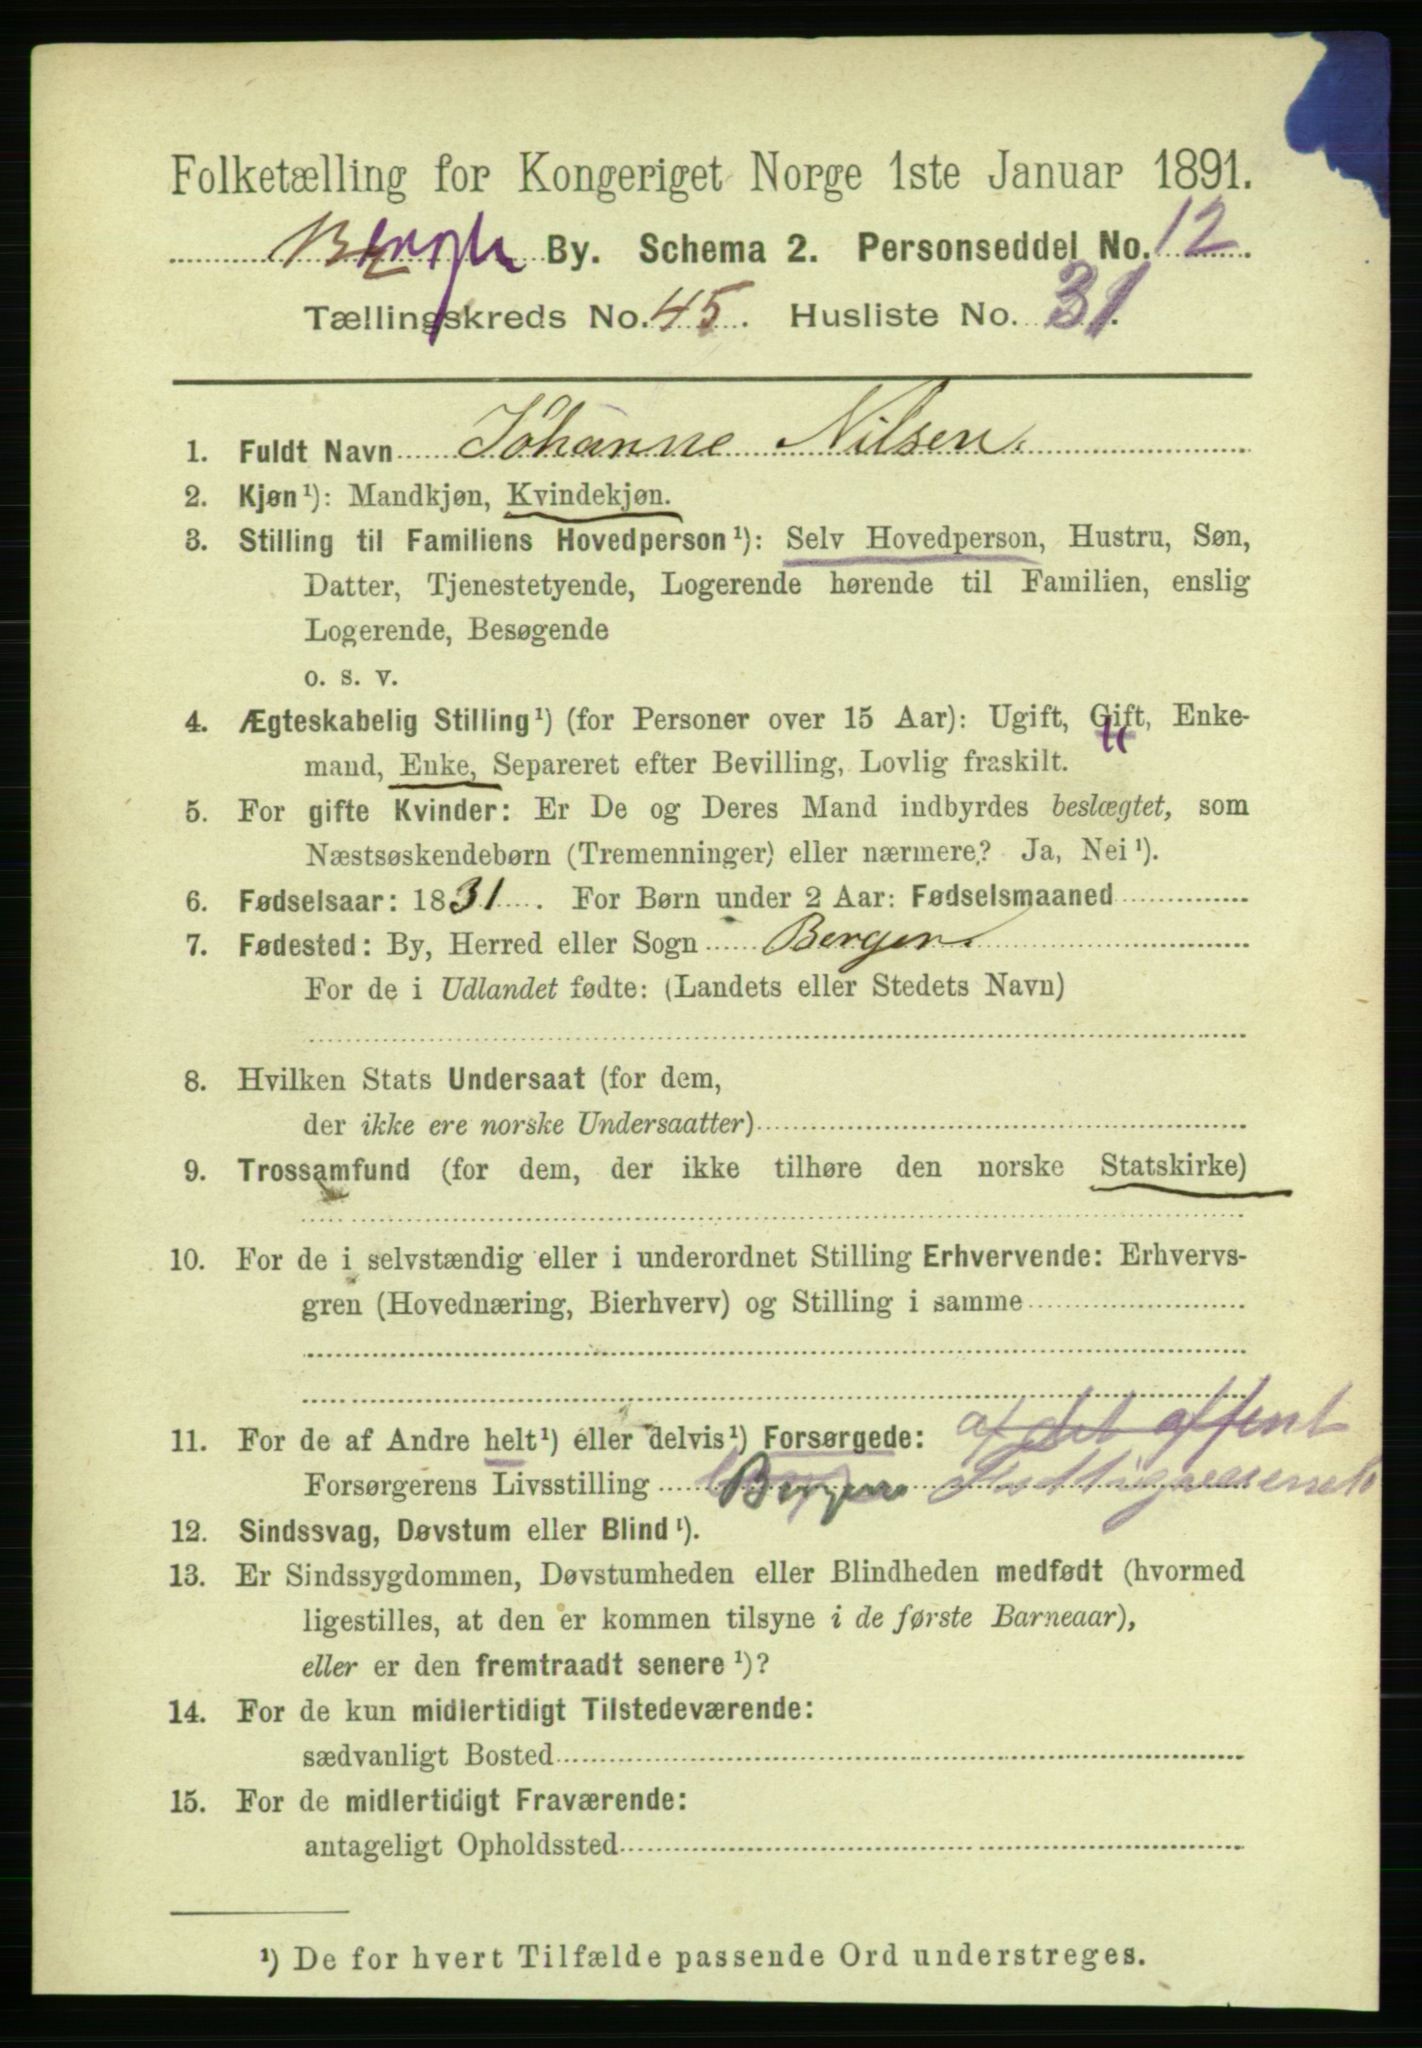 Folketælling for Kongeriget Norge 1ste Januar 1891.
By. Schema 2. Personseddel No. 12.
Tællingskreds No. 45. Husliste No. 31.
1. Fuldt Navn Johanne Nilsen.
2. Kjøn ¹): Mandkjøn, Kvindekjøn.
3. Stilling til Familiens Hovedperson ¹): Selv Hovedperson, Hustru, Søn,
Datter, Tjenestetyende, Logerende hørende til Familien, enslig
Logerende, Besøgende
o. s. v.
4. Ægteskabelig Stilling ¹) (for Personer over 15 Aar): Ugift, Gift, Enke-
mand, Enke, Separeret efter Bevilling, Lovlig fraskilt.
5. For gifte Kvinder: Er De og Deres Mand indbyrdes beslægtet, som
Næstsøskendebørn (Tremenninger) eller nærmere? Ja, Nei ¹).
6. Fødselsaar: 1831. For Børn under 2 Aar: Fødselsmaaned
7. Fødested: By, Herred eller Sogn Bergen
For de i Udlandet fødte: (Landets eller Stedets Navn)
8. Hvilken Stats Undersaat (for dem,
der ikke ere norske Undersaatter)
9. Trossamfund (for dem, der ikke tilhøre den norske Statskirke)
10. For de i selvstændig eller i underordnet Stilling Erhvervende: Erhvervs-
gren (Hovednæring, Bierhverv) og Stilling i samme
11. For de af Andre helt ¹) eller delvis ¹) Forsørgede: af det offent
Forsørgerens Livsstilling Bergens
12. Sindssvag, Døvstum eller Blind ¹).
13. Er Sindssygdommen, Døvstumheden eller Blindheden medfødt (hvormed
ligestilles, at den er kommen tilsyne i de første Barneaar),
eller er den fremtraadt senere ¹)?
14. For de kun midlertidigt Tilstedeværende:
sædvanligt Bosted
15. For de midlertidigt Fraværende:
antageligt Opholdssted
¹) De for hvert Tilfælde passende Ord understreges.